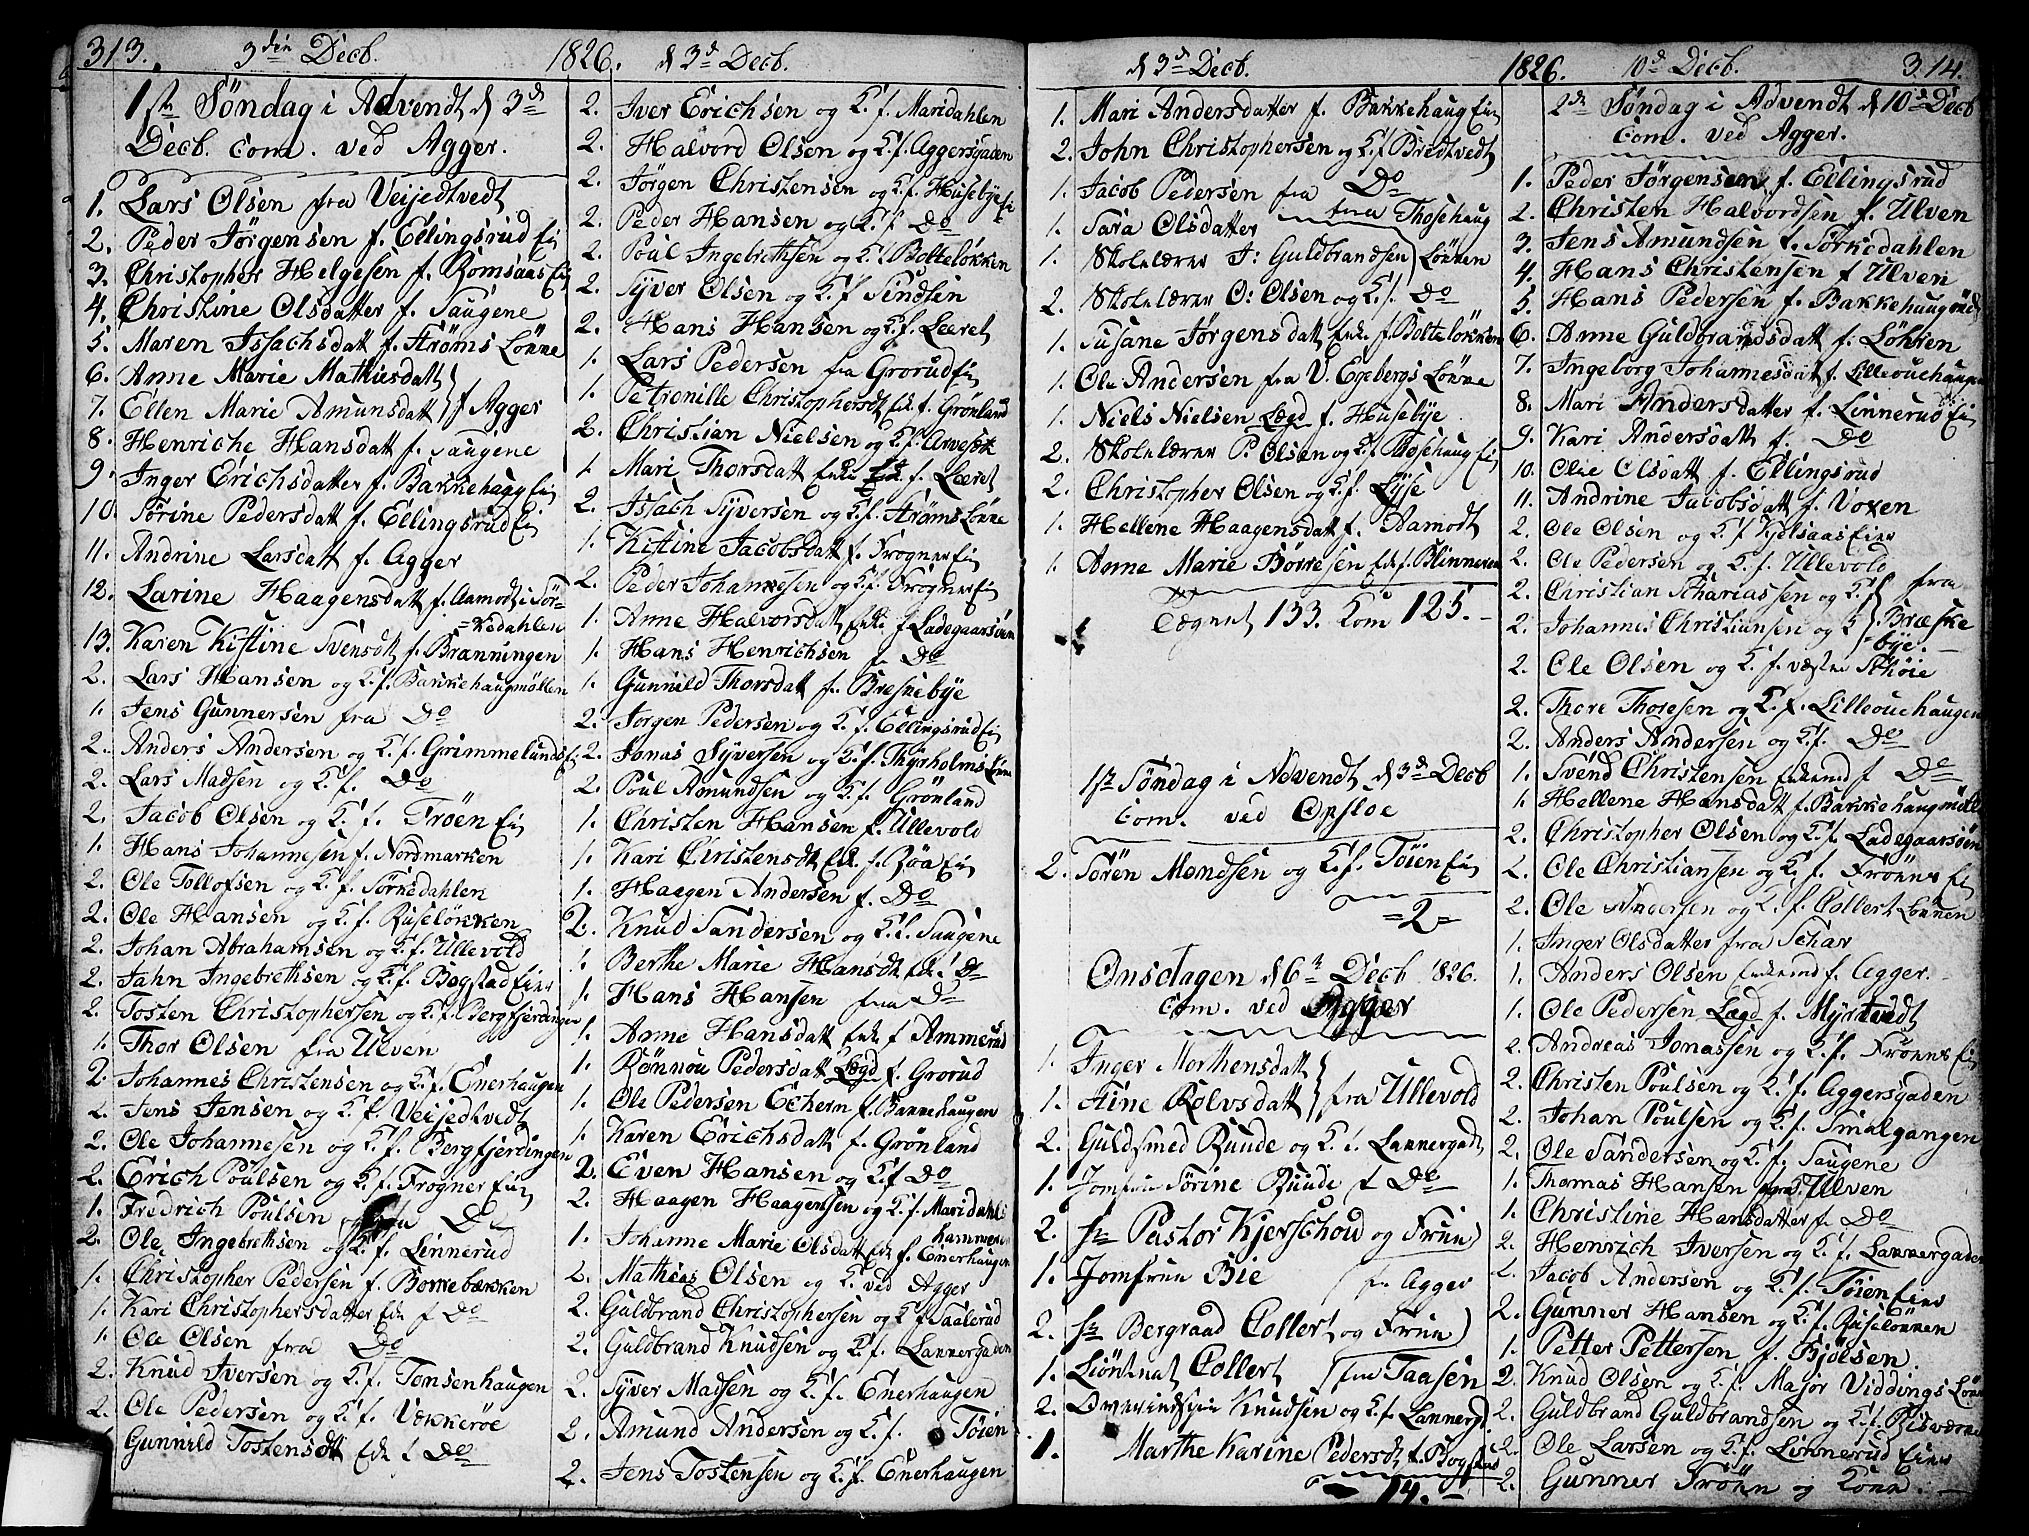 313. 3die Decb. 1826. d 3d Decb.
1ste Søndag i Advendt d 3d
Decb. Com. ved Agger.
1. Lars Olsen fra Veijedtvedt
2. Peder Jörgensen f. Ellingsrud Ei
3. Christopher Helgesen f. Romsaas Ei
4. Christine Olsdatter f. Saugene
5. Maren Issachsdatt f. Strøms Lönne
6. Anne Marie Mathiisdatt
7. Ellen Marie Amunsdatt f Agger
8. Henriche Hansdatt f. Saugene
9. Inger Erichsdatter f. Bakkehaug Ei
10. Sörine Pedersdatt f. Ellingsrud Ei
11. Andrine Larsdatt f. Agger
12. Larine Haagensdatt f. Aamodt i Sör-
=kedahlen
13. Karen Kistine Svensdt f. Branningen
2. Lars Hansen og K. f. Bakkehaugmöllen
1. Jens Gunnersen fra Do
2. Anders Andersen og K. f. Grimmelunds Ei
2. Lars Madsen og K. f. Do
2. Jacob Olsen og K. f. Fröen Ei
1. Hans Johannesen f. Nordmarken
2. Ole Tollofsen og K. f. Sörkedahlen
2. Ole Hansen og K. f. Ruseløkken
2. Johan Abrahamsen og K. f. Ullevold
2. Jahn Ingebrethsen og K. f. Bogstad Eier
2. Tosten Christophersen og K. f. Bergfjerdingen
1. Thor Olsen fra Ulven
2. Johannes Christensen og K. f. Enerhaugen
2. Jens Jensen og K. f. Veijedtvedt
2. Ole Johannesen og K. f. Bergfjerdingen
2. Erich Poulsen og K. f. Frogner Ei
1. Fredrich Poulsen fra Do
2. Ole Ingebrethsen og K. f. Linnerud
1. Christopher Pedersen f. Borrebækken
1. Kari Christophersdatter Ek f Do
1. Ole Olsen fra Do
2. Knud Iversen og K. f. Tonsenhaugen
2. Ole Pedersen og K. f. Vækkerøe
Gunnild Tostensdtt Ek f Do
2. Iver Erichsen og K. f. Maridahlen
2. Halvord Olsen og K. f. Aggersgaden
2. Jørgen Christensen og K. f. Husebye
2. Peder Hansen og K. f Do
2. Poul Ingebrethsen og K. f Bolteløkken
2. Syver Olsen og K. f
2. Hans Hansen og K. f. Læret
1. Lars Pedersen fra Grorud Ei
1. Petronille Christophersdt Ek f. Grönland
2. Christian Nielsen og K. f.
1. Mari Thorsdatt Enke f. Læret
2. Issach Syversen og K. f. Strøms Lønne
1. Kistine Jacobsdatt f. Frogner Ei
2. Peder Johannesen og K. f. Frogner Ei
1. Anne Halvorsdatt Enke f Ladegaarsöen
1. Hans Henrichsen f. Do
1. Gunnild Thorsdatt f. Breskebye
2. Jorgen Pedersen og K. f. Ellingsrud Ei
2. Jonas Syversen og K. f. Thyrholms
2. Poul Amundsen og K. f. Grønland
1. Christen Hansen f. Ullevold
1. Kari Christensdt Ek. f. Röa Ei
1. Haagen Andersen f. Do
2. Knud Sandersen og K. f. Saugene
1. Berthe Marie Hansdt Ek f Do
1. Hans Hansen fra Do
1. Anne Hansdatt Ek f Ammerud
1. Rønnou Pedersdatt Lægd f. Grorud
1. Ole Pedersen Echern f. Bakkehaugen
1. Karen Erichsdatt f. Grønland
2. Even Hansen og K. f Do
2. Haagen Haagensen og K. f. Maridahls
hammeren
1. Johanne Marie Olsdatt Ek f. Enerhaugen
2. Mathias Olsen og K. ved Agger
2. Guldbrand Christophersen og K f
2. Guldbrand Knudsen og K. f. Lakkergaden
2. Syver Madsen og K. f. Enerhaugen
2. Amund Andersen og K. f. Töien
2. Jens Tostensen og K. f. Enerhaugen
d 3d Decb. 1826. 10d Decb. 314.
1. Mari Andersdatter f. Bakkehaug Ei
2. John Christophersen og K. f Bredtvedt
1. Jacob Pedersen fra Do
1. Sara Olsdatter fra Thosehaug
1. Skolelærer J: Guldbrandsen Lönnen
2. Skolelærer O: Olsen og K. f. Do
1. Susane Jørgensdatt Enk. f. Bolteløkken
1. Ole Andersen fra V. Egebergs Lønne
1. Niels Nielsen Lægd f. Husebye
2. Skolelærer P. Olsen og K. f. Thosehaug Ei
2. Christopher Olsen og K. f. Lyse
1. Hellene Haagensdatt f. Aamodt
1. Anne Marie Børresen Ek f. Blinneren
Tegnet 133. Kom 125.
1ste Søndag i Advendt d 3d Decb
Com. ved Opsloe
2. Sören Mondsen og K. f. Töien Ei
=2=
Onsdagen d 6te Decb 1826.
Com. ved Agger
1. Inger Morthensdatt
1. Stine Rolvsdatt fra Ullevold
2. Guldsmed Ruude og K. f. Lakkergad
1. Jomfrue Sørine Ruude f Do
2. Hr Pastor Kjerschou og Frue
1. Jomfrue Bie fra Agger
2. Hr Bergraad Collert og Frue
1. Liöitnat Collert fra Taasen
2. Knudsen og K. f. Lakkergd.
1. Marthe Karine Pedersdt f. Bogstad
14.
2de Søndag i Advendt d 10d Decb
Com. ved Agger.
1. Peder Jørgensen f. Ellingsrud
2. Christen Halvordsen f. Ulven
3. Jens Amundsen f. Sörkedahlen
4. Hans Christensen f Ulven
5. Hans Pedersen f. Bakkehaugmöll
6. Anne Guldbrandsdatt f. Løkken
7. Ingeborg Johannesdatt f. Lilleouchaugen
8. Mari Andersdatter f. Linnerud Ei
9. Kari Andersdatt f. Do
10. Olie Olsdatt f. Ellingsrud
11. Andrine Jacobsdatt f. Voxen
2. Ole Olsen og K. f Kjelsaas Eier
2. Ole Pedersen og K. f. Ullevold
2. Christian Schariassen og K. f fra
2. Johannes Christiansen og K Bræske
bye.
2. Ole Olsen og K. f væstre Schøie
2. Thore Thosesen og K. f. Lilleouchaugen
2. Anders Andersen og K. f. Do
1. Svend Christensen Enkemd f Do
1. Hellene Hansdatt f. Bakkehaugmöll
2. Christopher Olsen og K. f. Ladegaarsöen
2. Ole Christiansen og K. f. Frönnes Ei
2. Ole Andersen og K. f. Collert Lønnen
1. Inger Olsdatter fra Schar
1. Anders Olsen Enkemd f. Agger.
1. Ole Pedersen Lægd f. Myrtvedt
2. Andreas Jonassen og K. f. Frönnes Ei
2. Christen Poulsen og K. f. Aggersgaden
2. Johan Poulsen og K. f. Smalgangen
2. Ole Sandersen og K. f. Saugene
1. Thomas Hansen fra Ulven
1. Christine Hansdatter f. Do
2. Henrich Iversen og K. f. Lakkergaden
2. Jacob Andersen og K. f. Töien Eier
2. Gunner Hansen og K. f. Ruselønnen
1. Petter Pettersen f. Bjølsen.
2. Knud Olsen og K. f. Major Viddings Lønn
2. Guldbrand Guldbrandsen og K. f.
2. Ole Larsen og K. f. Linnerud Eier
2. Gunner Frönn og Kone.